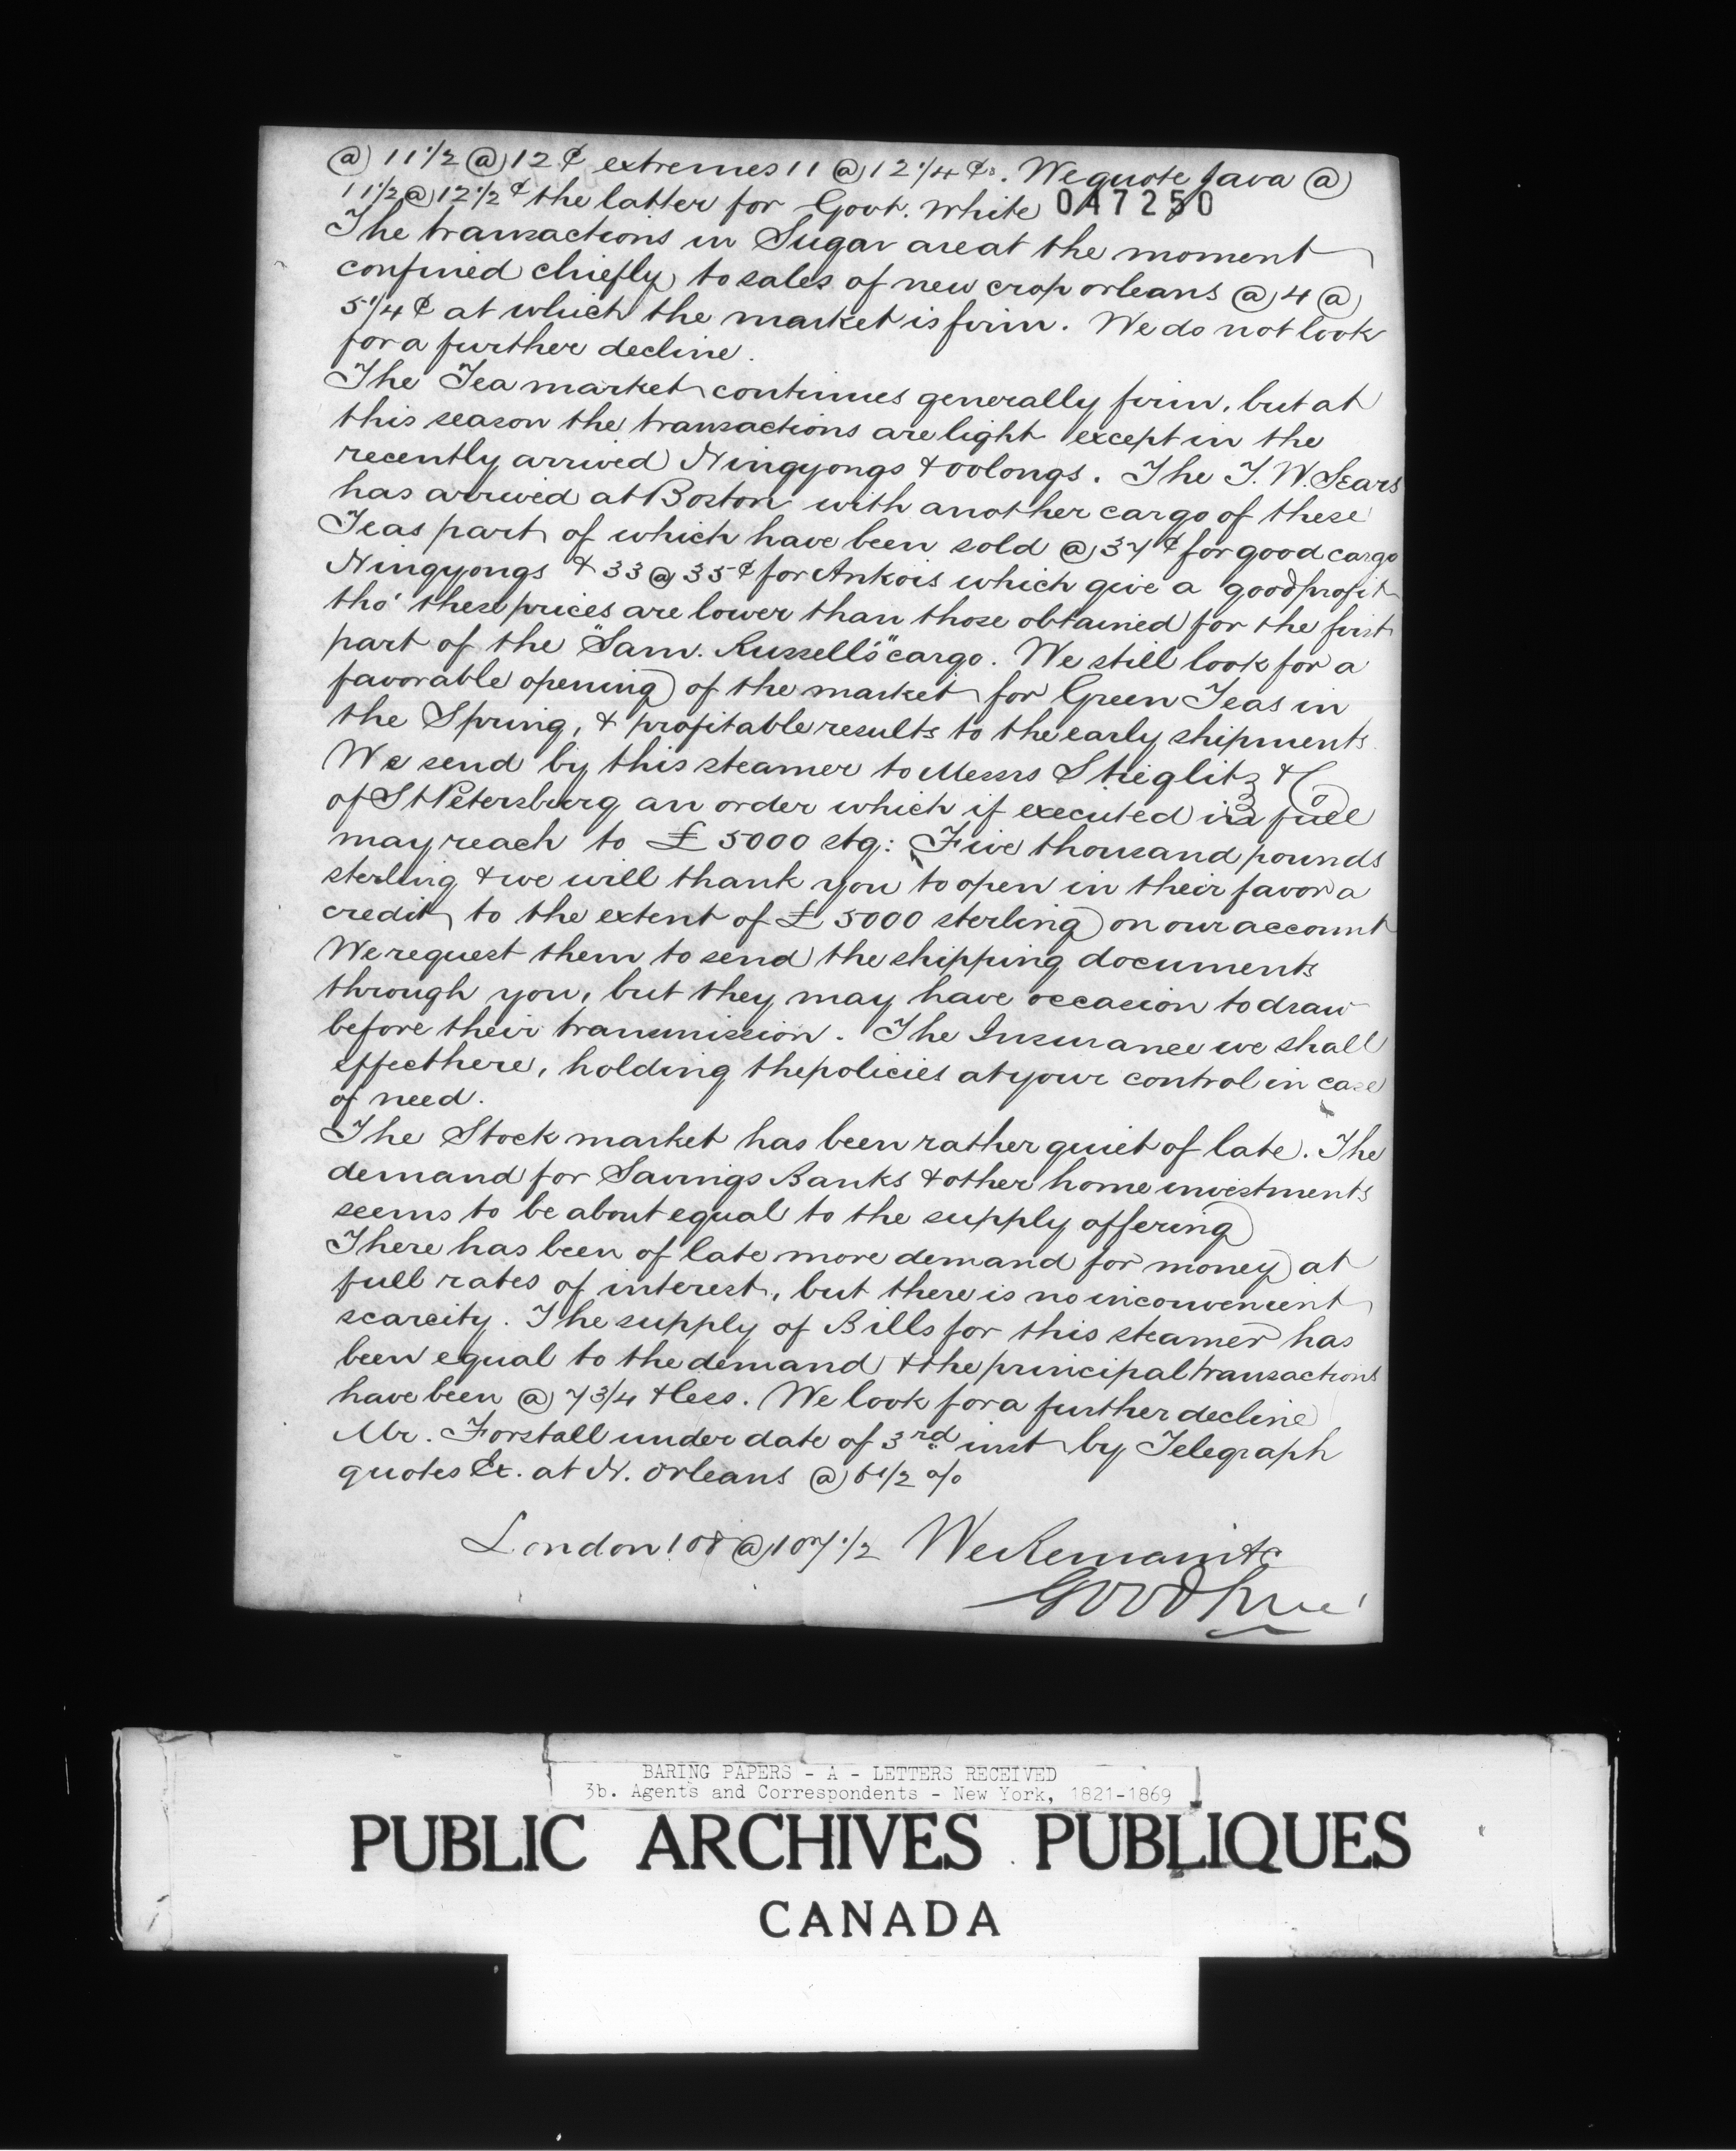 @ 11 1/2 @ 12 ¢ extremes 11 @ 12 1/4 ¢. We quote Java @
11 1/2 @ 12 1/2 ¢ the latter for Govt. White 047250
The transactions in Sugar are at the moment
confined chiefly to sales of new crop orleans @ 4 @
5 1/4 ¢ at which the market is firm. We do not look
for a further decline.
The Tea market continues generally firm, but at
this season the transactions are light except in the
recently arrived Ningyongs & oolongs. The J. W. Sears
has arrived at Boston with another cargo of these
Teas part of which have been sold @ 37 ¢ for good cargo
Ningyongs & 33 @ 35 ¢ for Ankois which give a good profit
tho' these prices are lower than those obtained for the first
part of the "Sam. Russell's" cargo. We still look for a
favorable opening of the market for Green Teas in
the Spring, & profitable results to the early shipments.
We send by this steamer to Messrs Stieglitz & Co
of St Petersburg an order which if executed in full
may reach to £ 5000 stg: Five thousand pounds
sterling & we will thank you to open in their favor a
credit to the extent of £ 5000 sterling on our account
We request them to send the shipping documents
through you, but they may have occasion to draw
before their transmission. The Insurance we shall
effect here, holding the policies at your control in case
of need.
The Stock market has been rather quiet of late. The
demand for Savings Banks & other home investments
seems to be about equal to the supply offering
There has been of late more demand for money at
full rates of interest, but there is no inconvenient
scarcity. The supply of Bills for this steamer has
been equal to the demand & the principal transactions
have been @ 7 3/4 & less. We look for a further decline
Mr. Forstall under date of 3rd inst by Telegraph
quotes Ex. at N. Orleans @ 6 1/2 %
London 108 @ 107 1/2 We Remain &c
Goodhue
BARING PAPERS - A - LETTERS RECEIVED
3b. Agents and Correspondents - New York, 1821-1869
PUBLIC ARCHIVES PUBLIQUES
CANADA